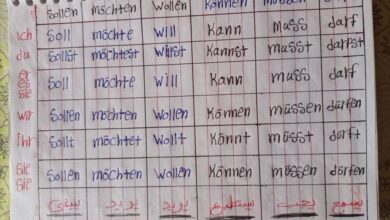 sollen möchten Wollen Können müssen
ich Soll möchte will Kann muss darf
du Sollst möchtest Willst Kannst musst darfst
er es sie Soll möchte will Kann muss darf
wir Sollen möchten Wollen Können müssen dürfen
ihr Sollt möchtet Wollt Könnt müsst dürft
Sie sie Sollen möchten Wollen Können müssen dürfen
ينبغي يريد يريد يستطيع يجب يسمح